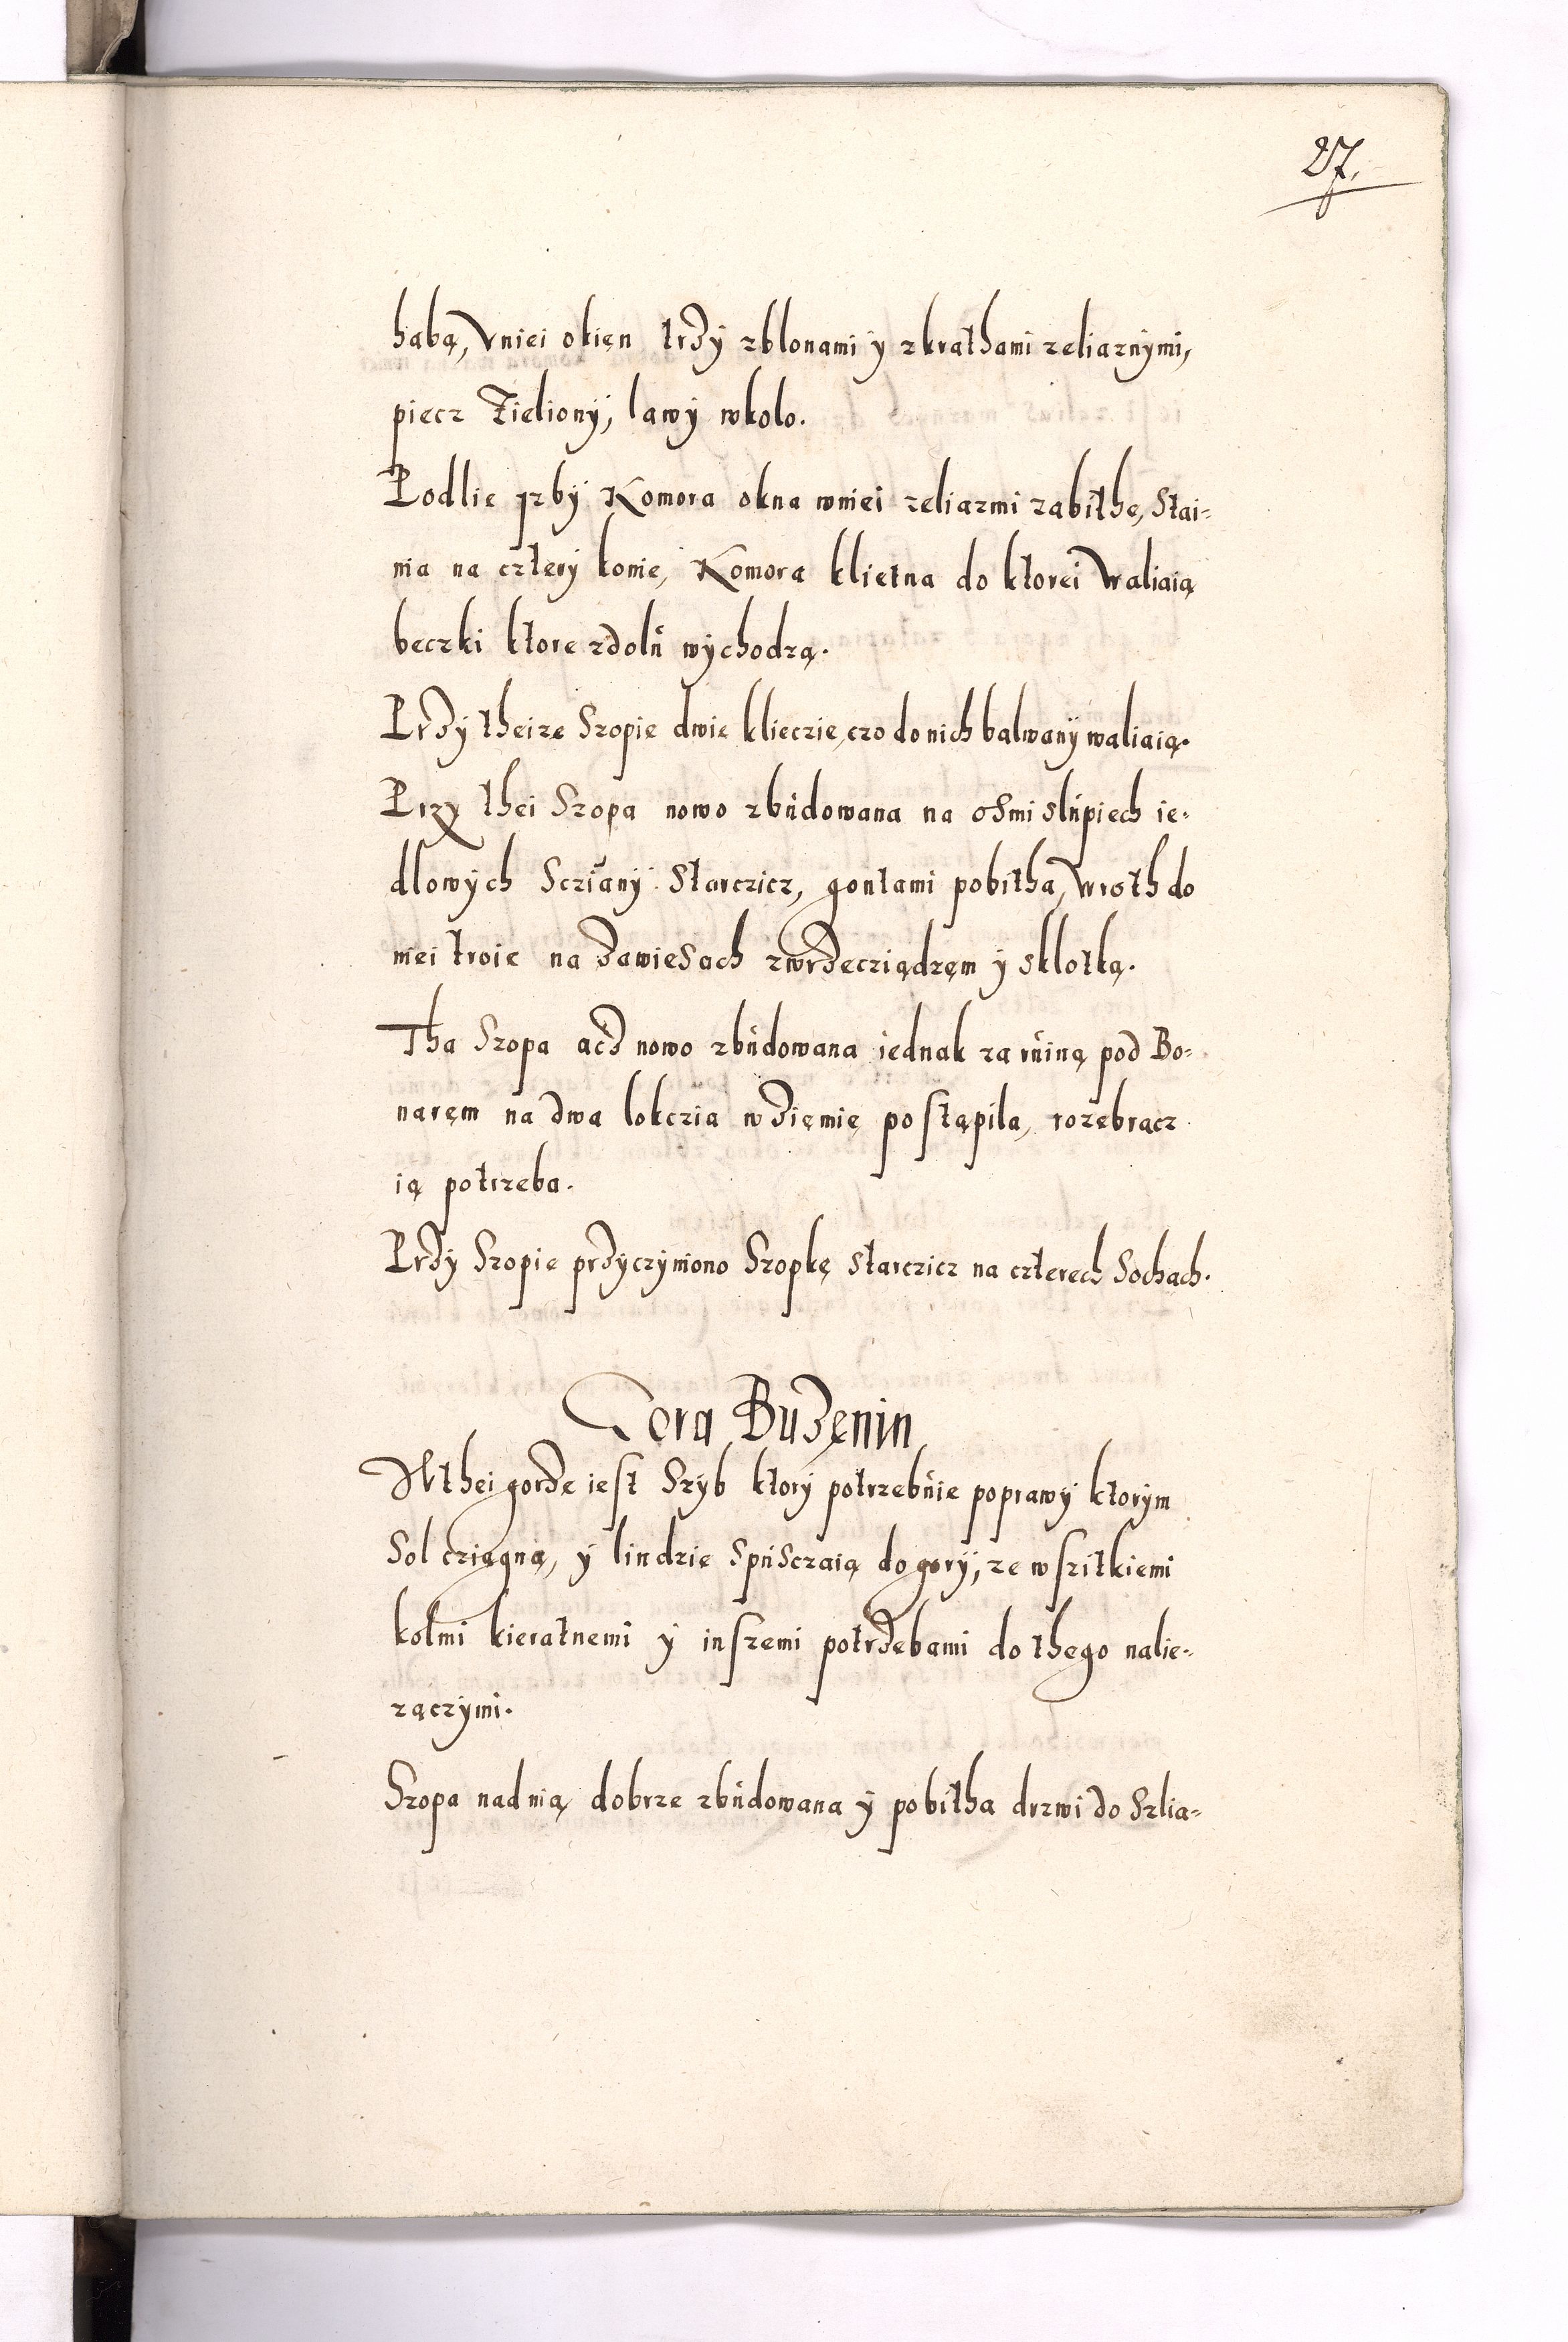 27.
habą, Vniei okięn trzÿ zblonami ÿ zkrathami zeliaznÿmi,
piecz Zielionÿ, lawÿ wkolo.
Podlie jzbÿ Komora okna wniei zeliazmi zabithe, Stai-
nia na czterÿ konie, Komora klietna do ktorei Waliaią
beczki ktore zdolu wÿchodzą.
Przÿ theize Szopie dwie klieczie, czo do nich balwanÿ waliaią.
Przy thei Szopa nowo zbudowana na osmi slupiech ie-
dlowÿch Scziany Starczicz, gontami pobitha, Wroth do
niei troie na zawiesach zwrzecziądzęm ÿ sklotką.
Tha Szopa acz nowo zbudowana iednak za ruiną pod Bo-
naręm na dwa lokczia w ziemię postąpila, rozebracz
ią potrzeba.
Przÿ Szopie przÿczÿniono Szopkę starczicz na czterech Sochach.
Gora Buzęnin
W thei gorze iest Szÿb ktorÿ potrzebuie poprawÿ ktorÿm
Sol cziągną, ÿ lindzie Spusczaią do gorÿ, ze wszitkiemi
kolmi kieratnemi ÿ inszemi potrzebami do thego nalie-
zączÿmi.
Szopa nad nią dobrze zbudowana ÿ pobitha drzwi do Szlia-